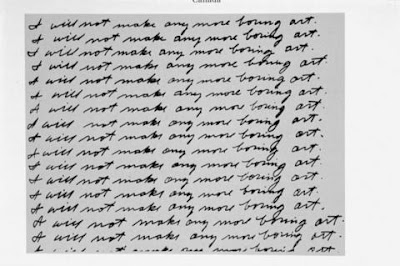 Canada
I will not make any more boring art.
I will not make any more boring art.
I will not make any more boring art.
I will not make any more boring art.
I will not make any more boring art.
I will not make any more boring art.
I will not make any more boring art.
I will not make any more boring art.
I will not make any more boring art.
I will not make any more boring art.
I will not make any more boring art.
I will not make any more boring art.
I will not make any more boring art.
I will not make any more boring art.
I will not make any more boring art.
I will not make any more boring art.
I will not make any more boring art